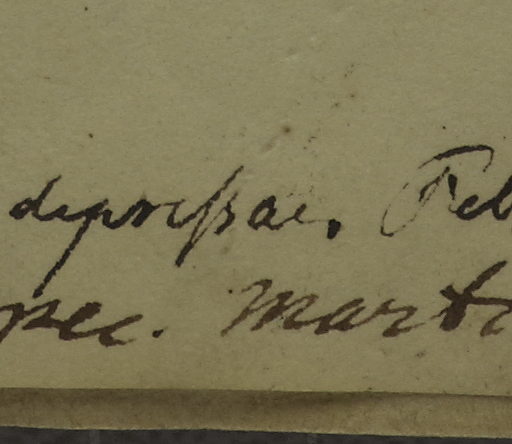 depressae. Feb
pec. Marti